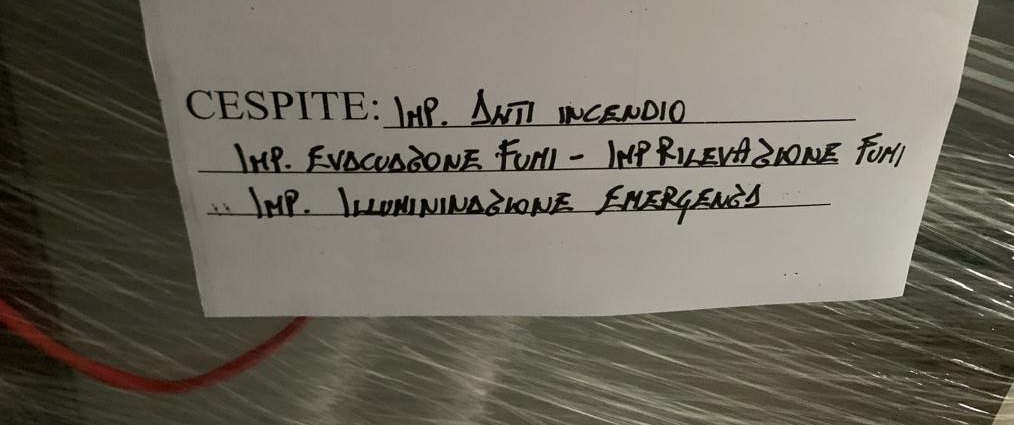 CESPITE: IMP. ANTI INCENDIO
IMP. EVACUAZIONE FUMI - IMP RILEVAZIONE FUMI
IMP. ILLUMININAZIONE EMERGENZA